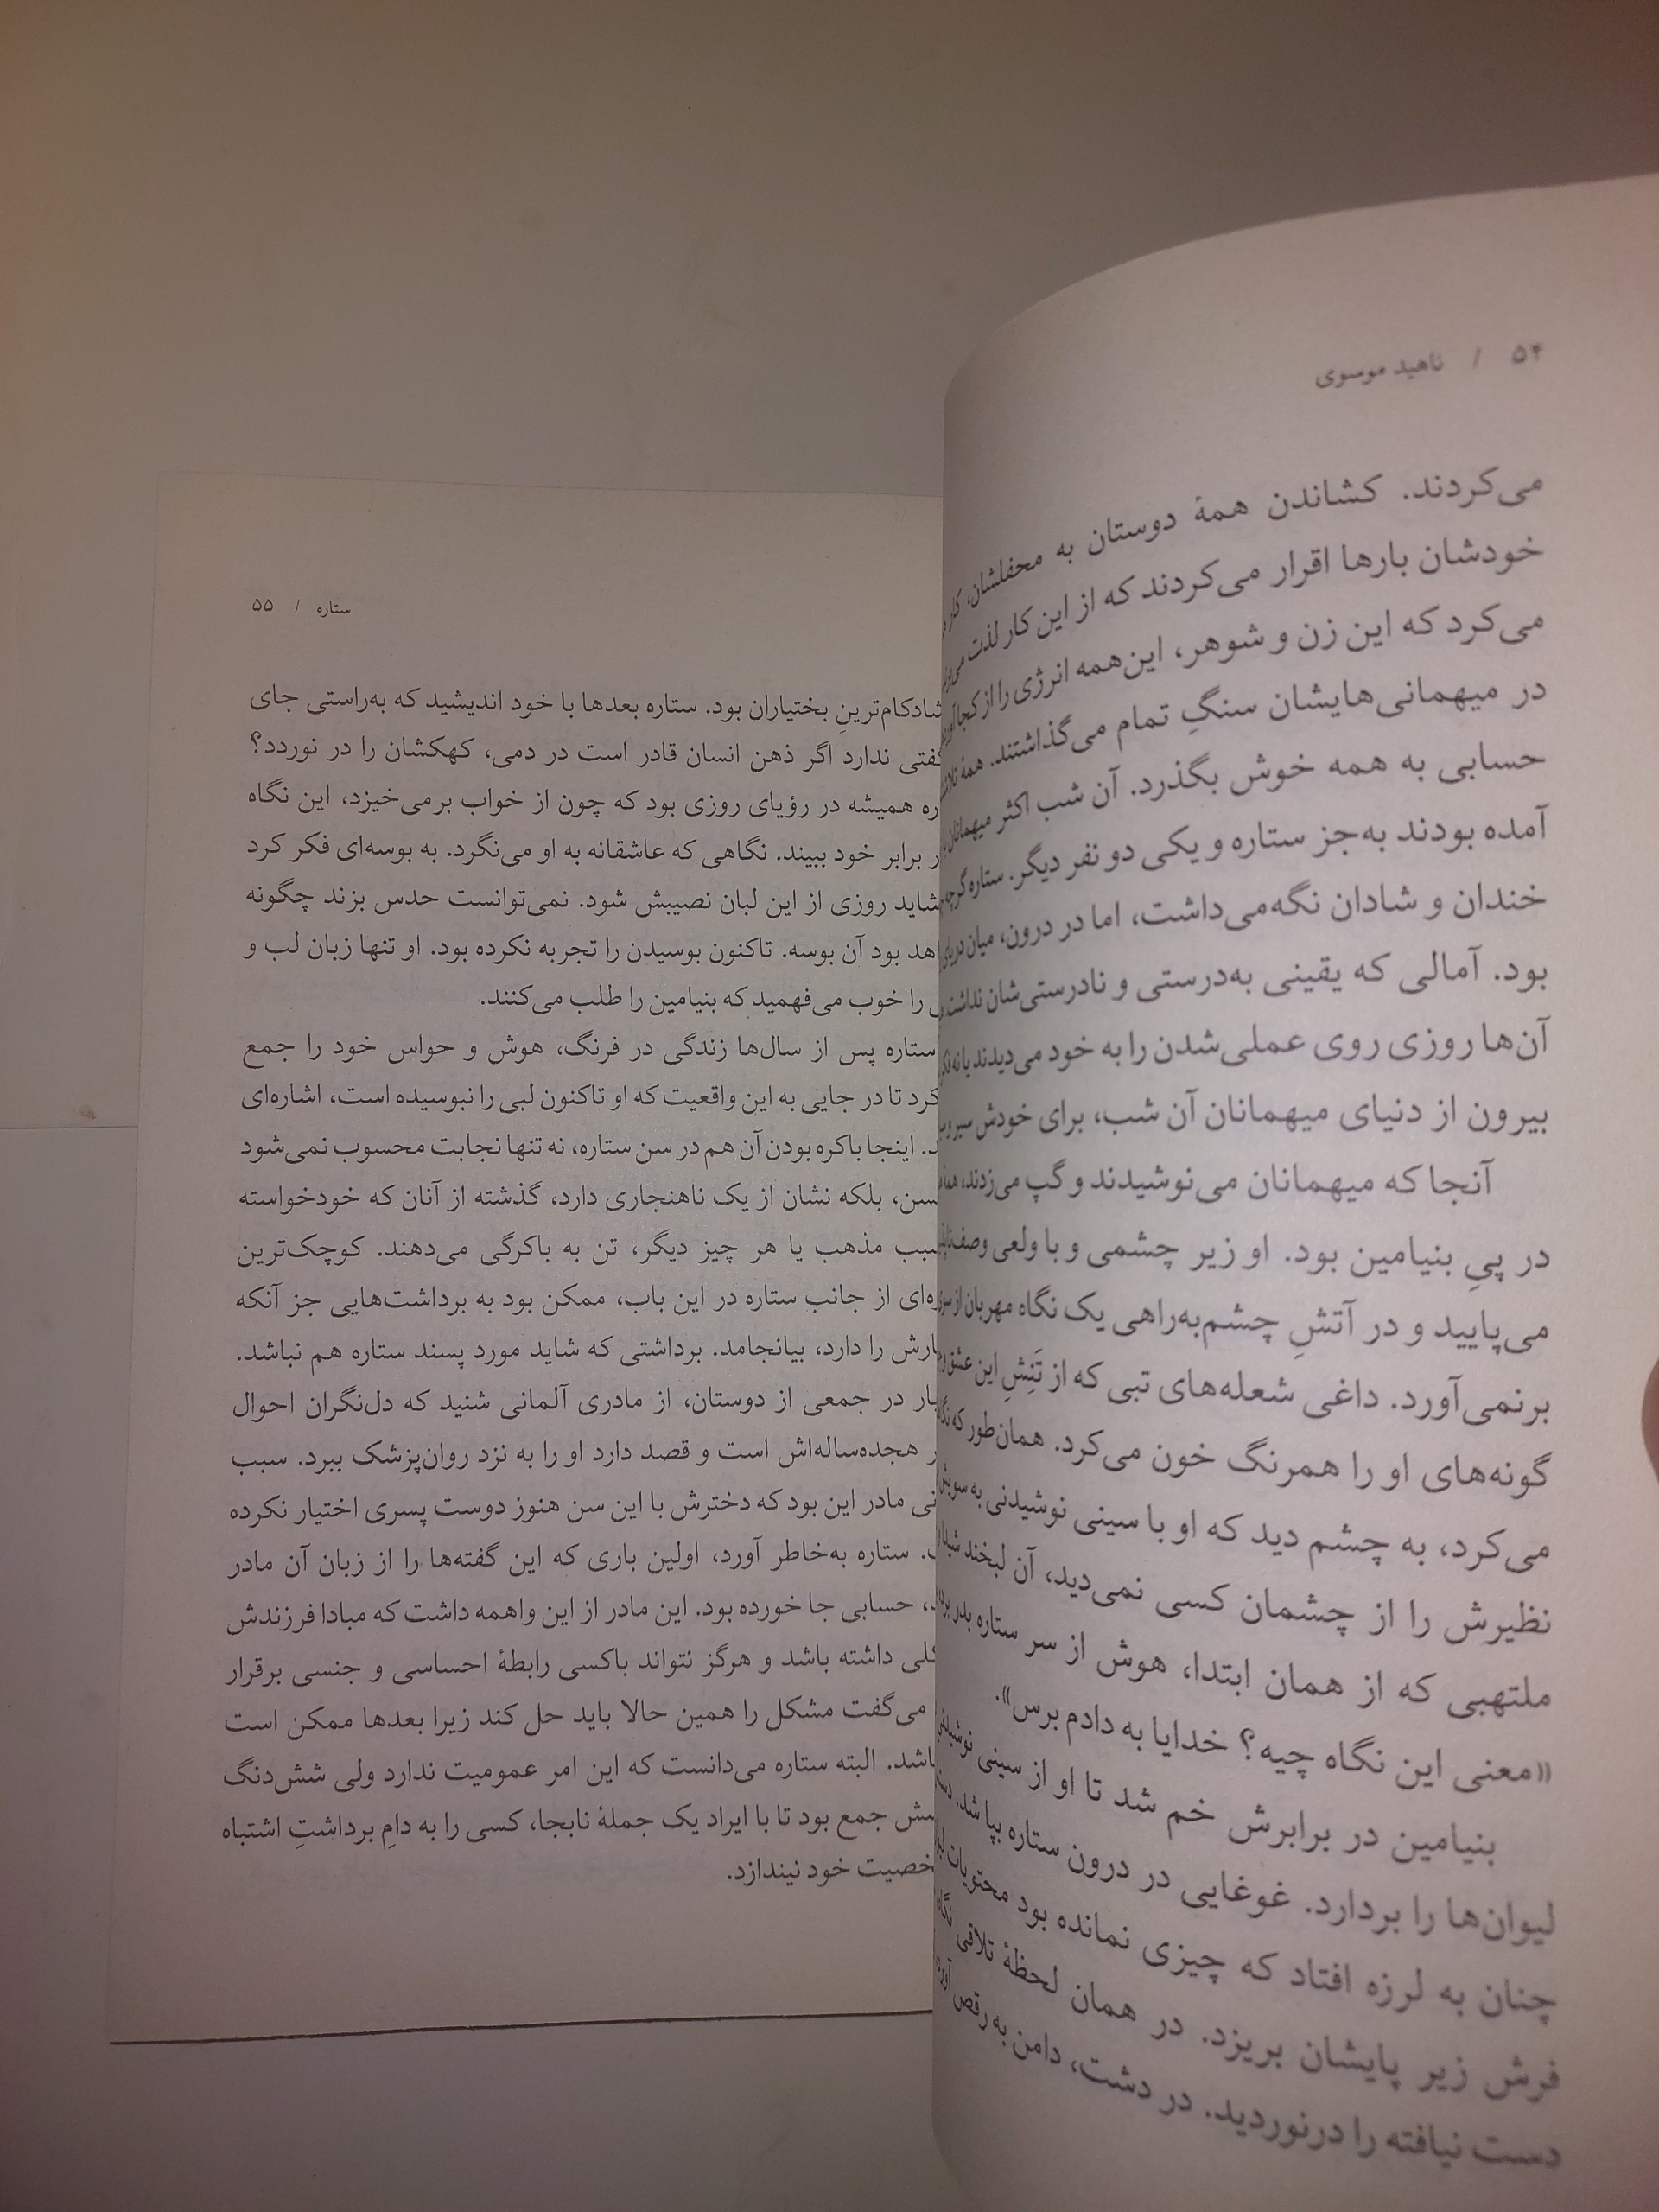 ۵۴ / ناهید موسوی
می‌کردند. کشاندن همهٔ دوستان به محفلشان، کار
خودشان بارها اقرار می‌کردند که از این کار لذت
می‌کرد که این زن و شوهر، این‌همه انرژی را از کجا
در میهمانی‌هایشان سنگِ تمام می‌گذاشتند. همهٔ
حسابی به همه خوش بگذرد. آن شب اکثر میهمانان
آمده بودند به‌جز ستاره و یکی دو نفر دیگر. ستاره گرچه
خندان و شادان نگه‌می‌داشت، اما در درون، میان دریای
بود. آمالی که یقینی به‌درستی و نادرستی‌شان نداشت
آن‌ها روزی روی عملی‌شدن را به خود می‌دیدند یا نه
بیرون از دنیای میهمانان آن شب، برای خودش
آنجا که میهمانان می‌نوشیدند و گپ می‌زدند،
در پیِ بنیامین بود. او زیر چشمی و با ولعی
می‌پایید و در آتشِ چشم‌به‌راهی یک نگاه مهربان از
برنمی‌آورد. داغی شعله‌های تبی که از تَنِشِ این عشق
گونه‌های او را همرنگ خون می‌کرد. همان‌طور که
می‌کرد، به چشم دید که او با سینی نوشیدنی به سویش
نظیرش را از چشمان کسی نمی‌دید، آن لبخند
ملتهبی که از همان ابتدا، هوش از سر ستاره بدر
«معنی این نگاه چیه؟ خدایا به دادم برس».
بنیامین در برابرش خم شد تا او از سینی
لیوان‌ها را بردارد. غوغایی در درون ستاره بپا شد.
چنان به لرزه افتاد که چیزی نمانده بود محتویات
فرش زیر پایشان بریزد. در همان لحظهٔ تلاقی
دست نیافته را درنوردید. در دشت، دامن به رقص
ستاره / ۵۵
شادکام‌ترینِ بختیاران بود. ستاره بعدها با خود اندیشید که به‌راستی جای
ندارد اگر ذهن انسان قادر است در دمی، کهکشان را در نوردد؟
همیشه در رؤیای روزی بود که چون از خواب برمی‌خیزد، این نگاه
برابر خود ببیند. نگاهی که عاشقانه به او می‌نگرد. به بوسه‌ای فکر کرد
شاید روزی از این لبان نصیبش شود. نمی‌توانست حدس بزند چگونه
بود آن بوسه. تاکنون بوسیدن را تجربه نکرده بود. او تنها زبان لب و
را خوب می‌فهمید که بنیامین را طلب می‌کنند.
ستاره پس از سال‌ها زندگی در فرنگ، هوش و حواس خود را جمع
کرد تا در جایی به این واقعیت که او تاکنون لبی را نبوسیده است، اشاره‌ای
اینجا باکره بودن آن هم در سن ستاره، نه تنها نجابت محسوب نمی‌شود
بلکه نشان از یک ناهنجاری دارد، گذشته از آنان که خودخواسته
مذهب یا هر چیز دیگر، تن به باکرگی می‌دهند. کوچک‌ترین
از جانب ستاره در این باب، ممکن بود به برداشت‌هایی جز آنکه
را دارد، بیانجامد. برداشتی که شاید مورد پسند ستاره هم نباشد.
در جمعی از دوستان، از مادری آلمانی شنید که دل‌نگران احوال
هجده‌ساله‌اش است و قصد دارد او را به نزد روان‌پزشک ببرد. سبب
مادر این بود که دخترش با این سن هنوز دوست پسری اختیار نکرده
ستاره به‌خاطر آورد، اولین باری که این گفته‌ها را از زبان آن مادر
حسابی جا خورده بود. این مادر از این واهمه داشت که مبادا فرزندش
داشته باشد و هرگز نتواند باکسی رابطهٔ احساسی و جنسی برقرار
می‌گفت مشکل را همین حالا باید حل کند زیرا بعدها ممکن است
البته ستاره می‌دانست که این امر عمومیت ندارد ولی شش‌دنگ
جمع بود تا با ایراد یک جملهٔ نابجا، کسی را به دامِ برداشتِ اشتباه
خود نیندازد.